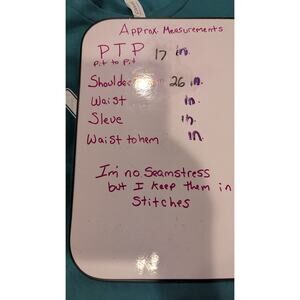 Approx Measurements
PTP 17 in.
pit to pit
Shoulder 26 in.
Waist in.
Sleve in.
Waist to hem in.
I'm no Seamstress
but I keep them in
Stitches